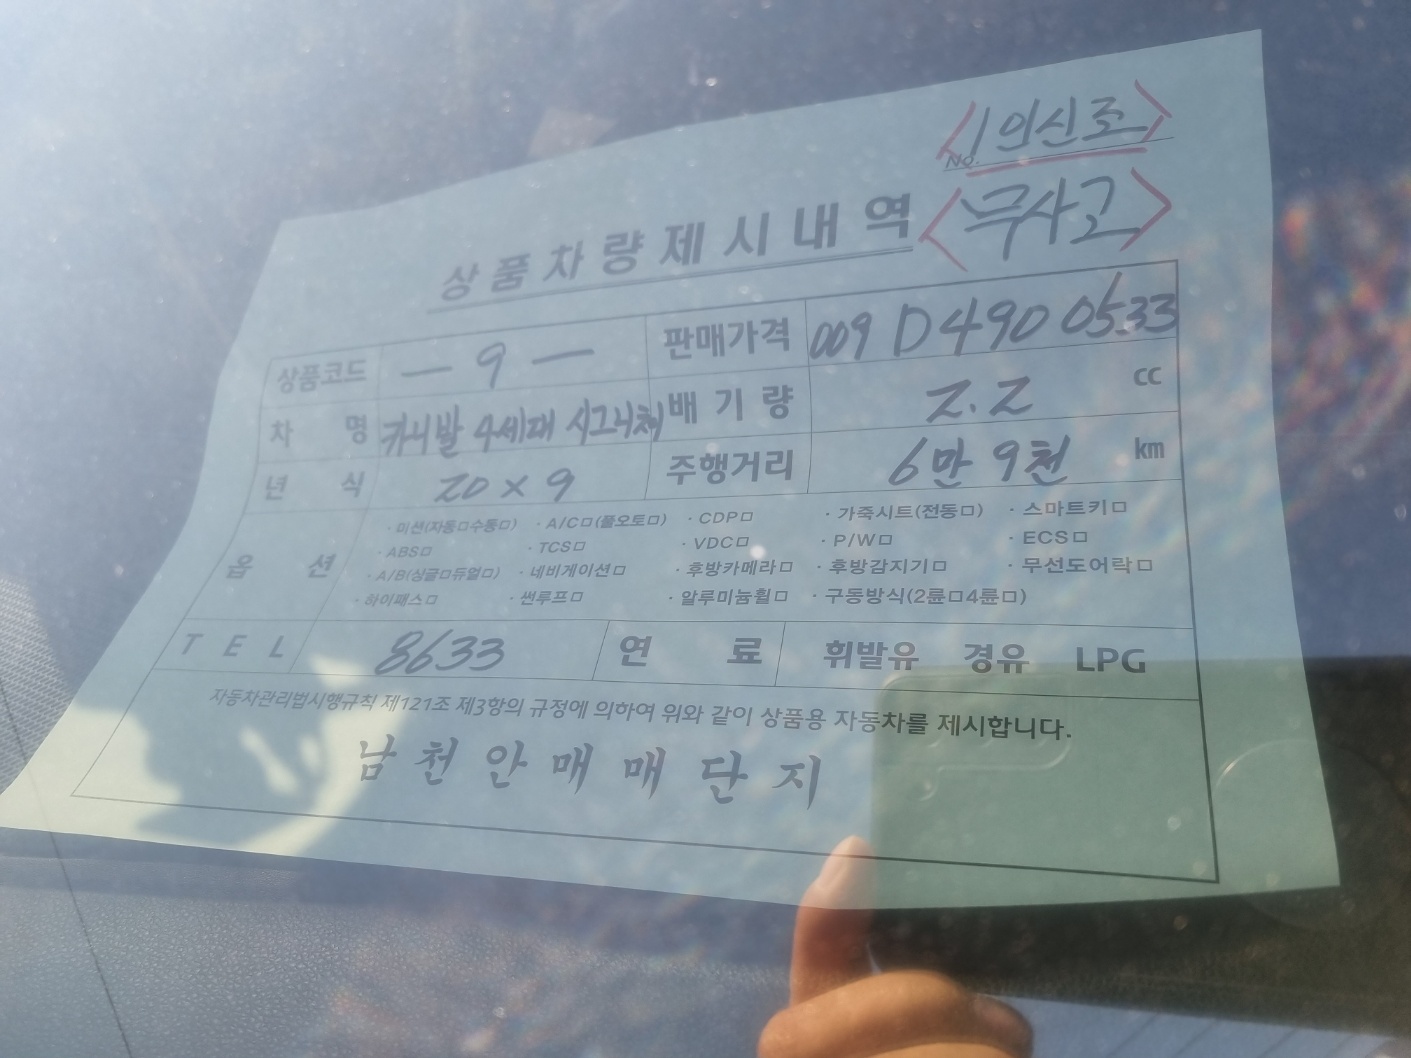 1인신조
NO.
무사고
상품차량제시내역
상품코드 — 9 — 판매가격 009 D490 0533
차 명 카니발 4세대 시그니처 배기량 2.2 cc
년 식 20 x 9 주행거리 6만 9천 km
옵 션
· 미션(자동□수동□) · A/C□(풀오토□) · CDP□ · 가죽시트(전동□) · 스마트키□
· ABS□ · TCS□ · VDC□ · P/W□ · ECS□
· A/B(싱글□듀얼□) · 네비게이션□ · 후방카메라□ · 후방감지기□ · 무선도어락□
· 하이패스□ · 썬루프□ · 알루미늄휠□ · 구동방식(2륜□4륜□)
T E L 8633 연 료 휘발유 경유 LPG
자동차관리법시행규칙 제121조 제3항의 규정에 의하여 위와 같이 상품용 자동차를 제시합니다.
남천안매매단지